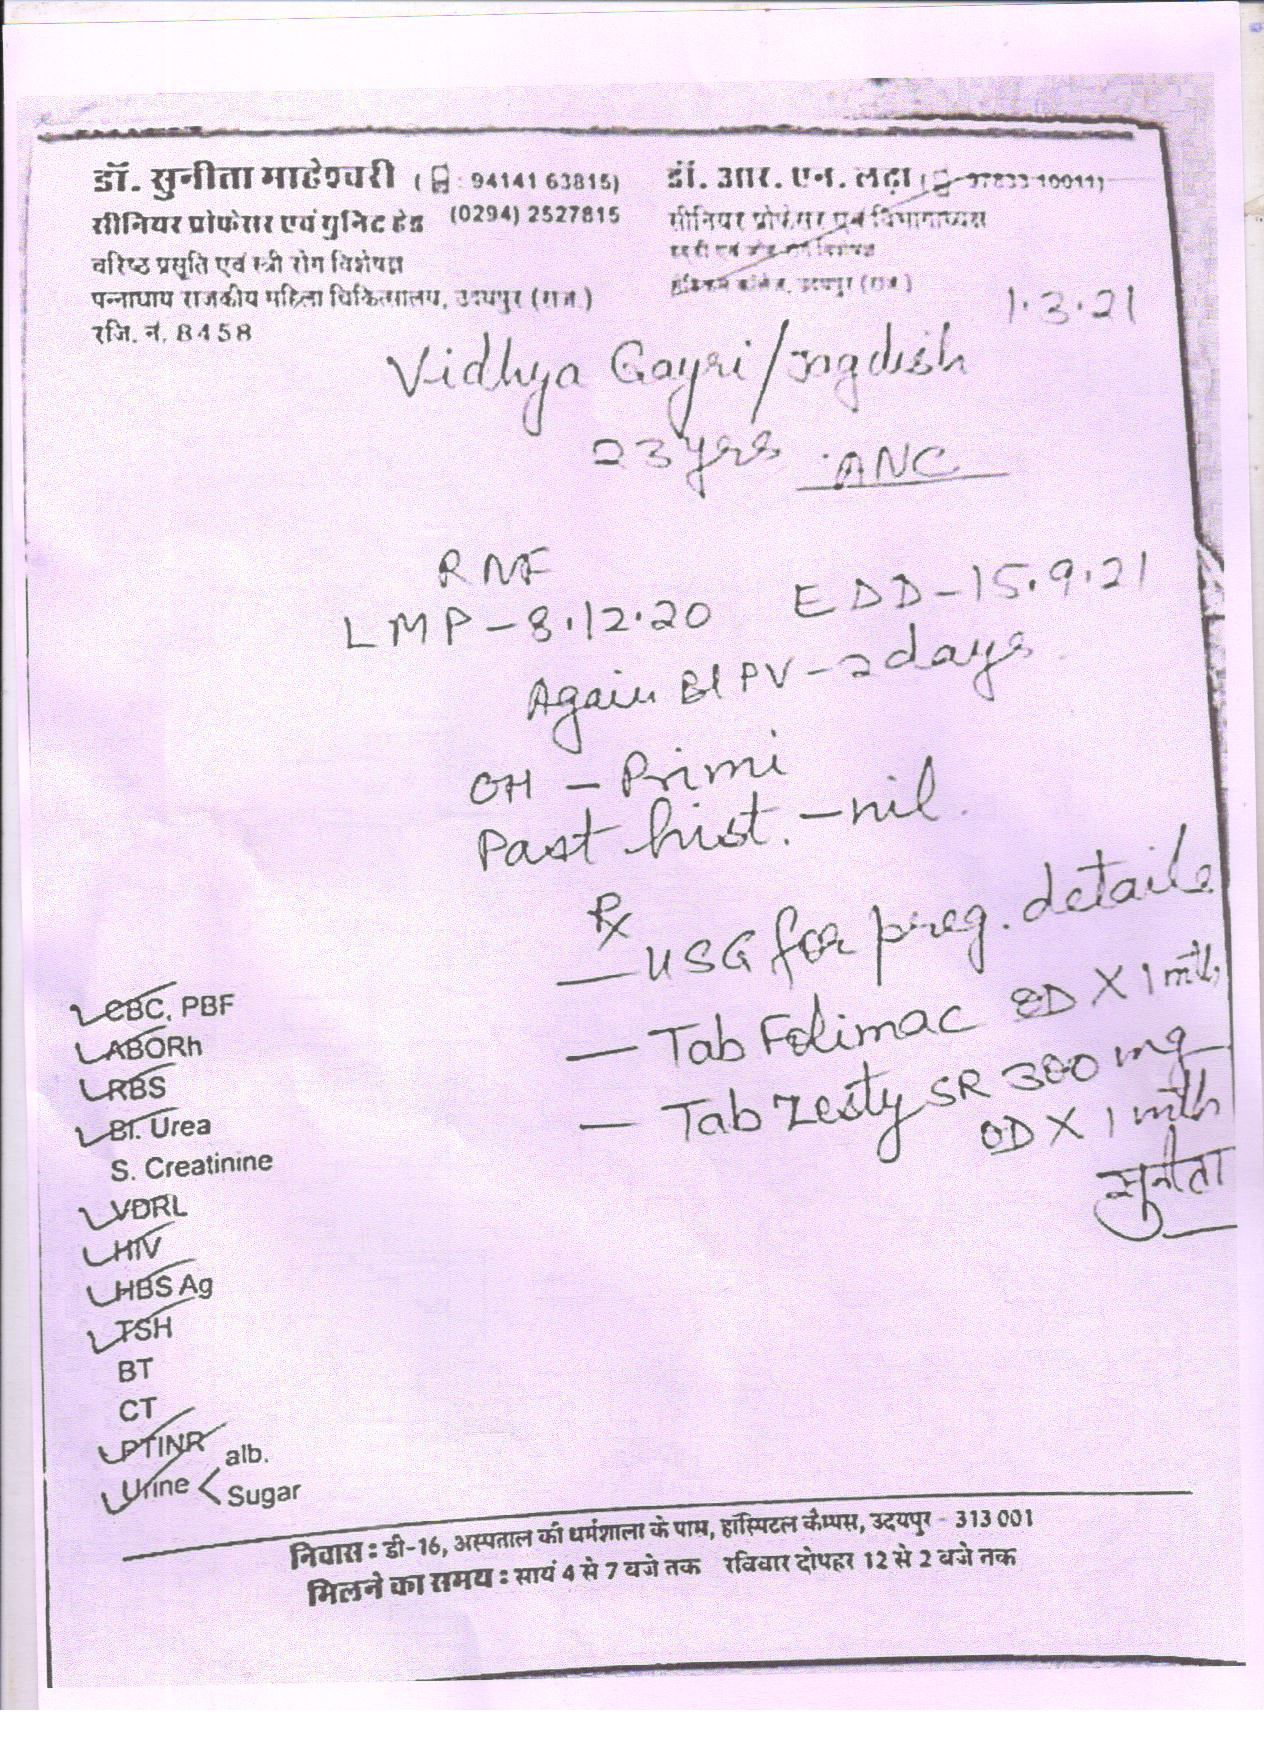 डॉ. सुनीता माहेश्वरी ( : 94141 63815)
सीनियर प्रोफेसर एवं युनिट हेड (0294) 2527815
वरिष्ठ प्रसूति एवं स्त्री रोग विशेषज्ञ
पन्नाधाय राजकीय महिला चिकित्सालय, उदयपुर (राज.)
रजि. नं. 8458
डॉ. आर. एन. लढ़ा ( 97833 10011)
सीनियर प्रोफेसर एवं विभागाध्यक्ष
मेडिकल कॉलेज, उदयपुर (राज.)
1.3.21
Vidhya Gayri/Jagdish
23 yrs ANC
RNF
LMP - 8.12.20 EDD - 15.9.21
Again Bl PV - 2 days
OH - Primi
Past hist. - nil.
Rx
— USG for preg. details
— Tab Folimac OD X 1 mth
— Tab Zesty SR 300 mg
OD X 1 mth
सुनीता
CBC, PBF
ABORh
RBS
Bl. Urea
S. Creatinine
VDRL
HIV
HBS Ag
TSH
BT
CT
PTINR
Urine < alb.
Sugar
निवास : डी-16, अस्पताल की धर्मशाला के पास, हॉस्पिटल कैम्पस, उदयपुर - 313 001
मिलने का समय : सायं 4 से 7 बजे तक रविवार दोपहर 12 से 2 बजे तक